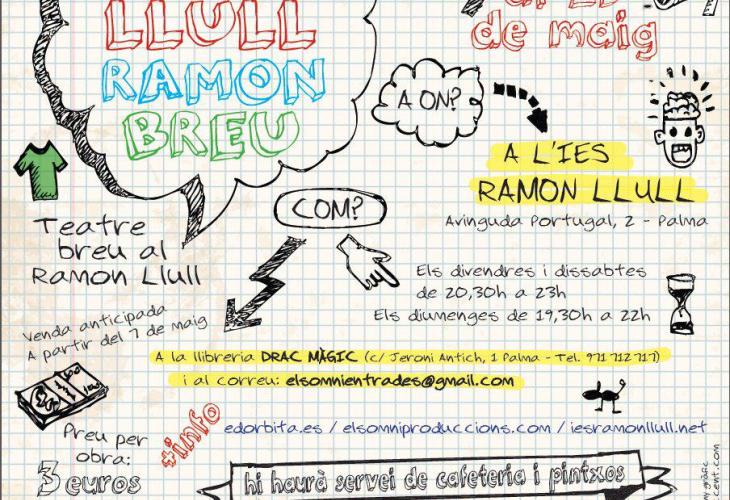 LLULL
RAMON
BREU
de maig
A ON?
A L'IES
RAMON LLULL
Avinguda Portugal, 2 - Palma
COM?
Teatre
breu al
Ramon Llull
Els divendres i dissabtes
de 20,30h a 23h
Els diumenges de 19,30h a 22h
Venda anticipada
A partir del 7 de maig
A la llibreria DRAC MÀGIC (c/ Jeroni Antich, 1 Palma - Tel. 971 712 717)
i al correu: elsomnientrades@gmail.com
Preu per
obra:
3 euros
#info
edorbita.es / elsomniproduccions.com / iesramonllull.net
hi haurà servei de cafeteria i pintxos